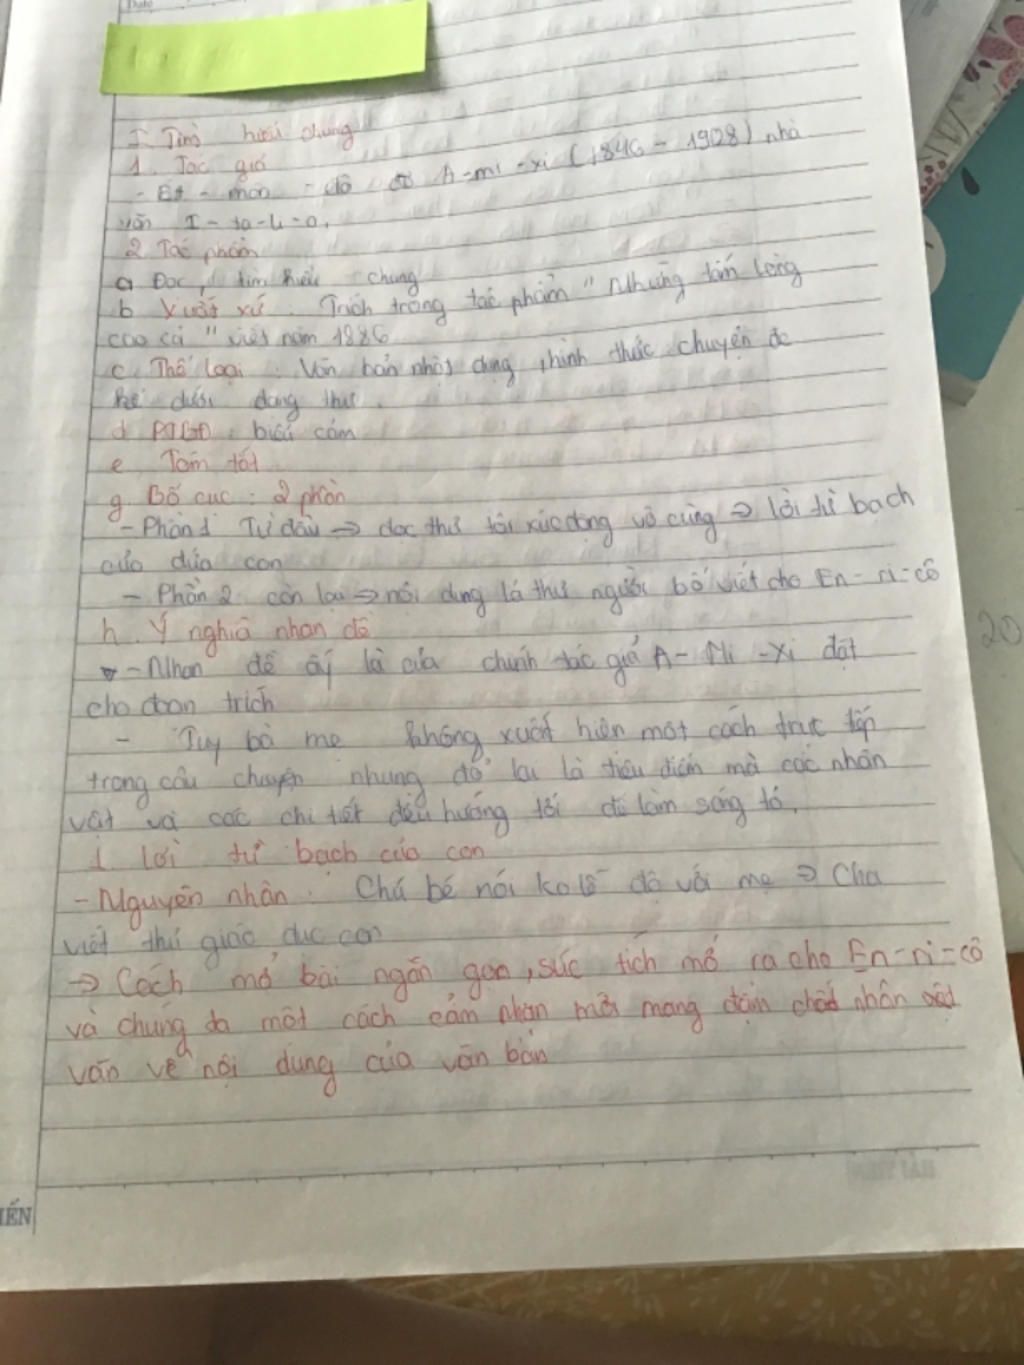 Date
I. Tìm hiểu chung
1. Tác giả
- Et - môn - đô đơ A-mi-xi (1846 - 1908) nhà
văn I-ta-li-a.
2 Tác phẩm
a Đọc, tìm hiểu chung
b Xuất xứ: Trích trong tác phẩm " Những tấm lòng
cao cả " viết năm 1886
c. Thể loại: Văn bản nhật dụng, hình thức chuyện đc
kể dưới dạng thư.
d PTBĐ: biểu cảm
e Tóm tắt
g Bố cục: 2 phần
- Phần 1 Từ đầu => đọc thư tôi xúc động vô cùng => lời tự bạch
của đứa con
- Phần 2: còn lại => nội dung lá thư người bố viết cho En-ri-cô
h. Ý nghĩa nhan đề
- Nhan đề ấy là của chính tác giả A-Mi-Xi đặt
cho đoạn trích
- Tuy bà mẹ không xuất hiện một cách trực tiếp
trong câu chuyện nhưng đó lại là tiêu điểm mà các nhân
vật và các chi tiết đều hướng tới để làm sáng tỏ.
1. lời tự bạch của con
- Nguyên nhân: Chú bé nói ko lễ độ với mẹ => Cha
viết thư giáo dục con
-> Cách mở bài ngắn gọn, súc tích mở ra cho En-ri-cô
và chúng ta một cách cảm nhận mới mang đậm chất nhân
văn về nội dung của văn bản
20
IẾN